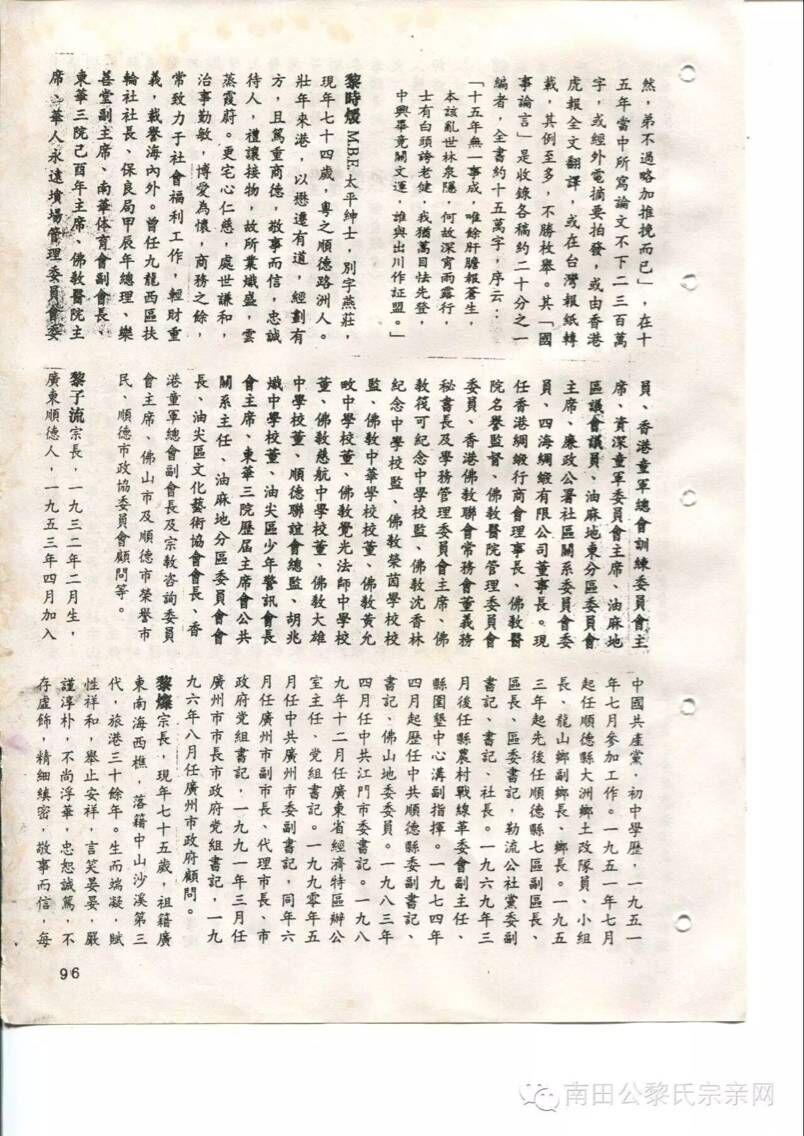 然，弟不過略加推挽而已」，在十
五年當中所寫論文不下二三百萬
字，或經外電摘要拍發，或由香港
虎報全文翻譯，或在台灣報紙轉
載，其例至多，不勝枚舉。其「國
事論言」是收錄各稿約二十分之一
編者，全書約十五萬字，序云：
「十五年無一事成，唯餘肝膽報蒼生，
本該亂世林泉隱，何故深宵雨露行，
士有白頭誇老健，我猶萬目怯先登，
中興畢竟關文運，誰與出川作証盟。」
黎時煖M.B.E.太平紳士，別字燕莊，
現年七十四歲，粵之順德路洲人。
壯年來港，以懋遷有道，經劃有
方，且篤重商德，敬事而信，忠誠
待人，禮讓接物，故所業熾盛，雲
蒸霞蔚。更宅心仁慈，處世謙和，
治事勤敏，博愛為懷，商務之餘，
常致力于社會福利工作，輕財重
義，載譽海內外。曾任九龍西區扶
輪社社長、保良局甲辰年總理、樂
善堂副主席、南華体育會副會長、
東華三院己酉年主席、佛教醫院主
席、華人永遠墳場管理委員會委
員、香港童軍總會訓練委員會主
席、資深童軍委員會主席、油麻地
區議會議員、油麻地東分區委員會
主席、廉政公署社區關系委員會委
員、四海綢緞有限公司董事長。現
任香港綢緞行商會理事長、佛教醫
院名譽監督、佛教醫院管理委員會
委員、香港佛教聯會常務會董義務
秘書長及學務管理委員會主席、佛
教筏可紀念中學校監、佛教沈香林
紀念中學校監、佛教榮茵學校校
監、佛教中華學校校董、佛教黃允
畋中學校董、佛教覺光法師中學校
董、佛教慈航中學校董、佛教大雄
中學校董、順德聯誼會總監、胡兆
熾中學校董、油尖區少年警訊會長
會主席、東華三院歷屆主席會公共
關系主任、油麻地分區委員會會
長、油尖區文化藝術協會會長、香
港童軍總會副會長及宗教咨詢委員
會主席、佛山市及順德市榮譽市
民、順德市政協委員會顧問等。
黎子流宗長，一九三二年二月生，
廣東順德人，一九五三年四月加入
中國共產黨，初中學歷，一九五一
年七月參加工作。一九五一年七月
起任順德縣大洲鄉土改隊員、小組
長、龍山鄉副鄉長、鄉長。一九五
三年起先後任順德縣七區副區長、
區長、區委書記，勒流公社黨委副
書記、書記、社長。一九六九年三
月後任縣農村戰線革委會副主任、
縣圍墾中心溝副指揮。一九七四年
四月起歷任中共順德縣委副書記、
書記、佛山地委委員。一九八三年
四月任中共江門市委書記。一九八
九年十二月任廣東省經濟特區辦公
室主任、党組書記。一九九零年五
月任中共廣州市委副書記，同年六
月任廣州市副市長、代理市長、市
政府党組書記，一九九一年三月任
廣州市市長市政府党組書記，一九
九六年八月任廣州市政府顧問。
黎燦宗長，現年七十五歲，祖籍廣
東南海西樵，落籍中山沙溪第三
代，旅港三十餘年。生而端凝，賦
性祥和，舉止安祥，言笑晏晏，嚴
謹淳朴，不尚浮華，忠恕誠篤，不
存虛飾，精細縝密，敬事而信，每
96
南田公黎氏宗亲网